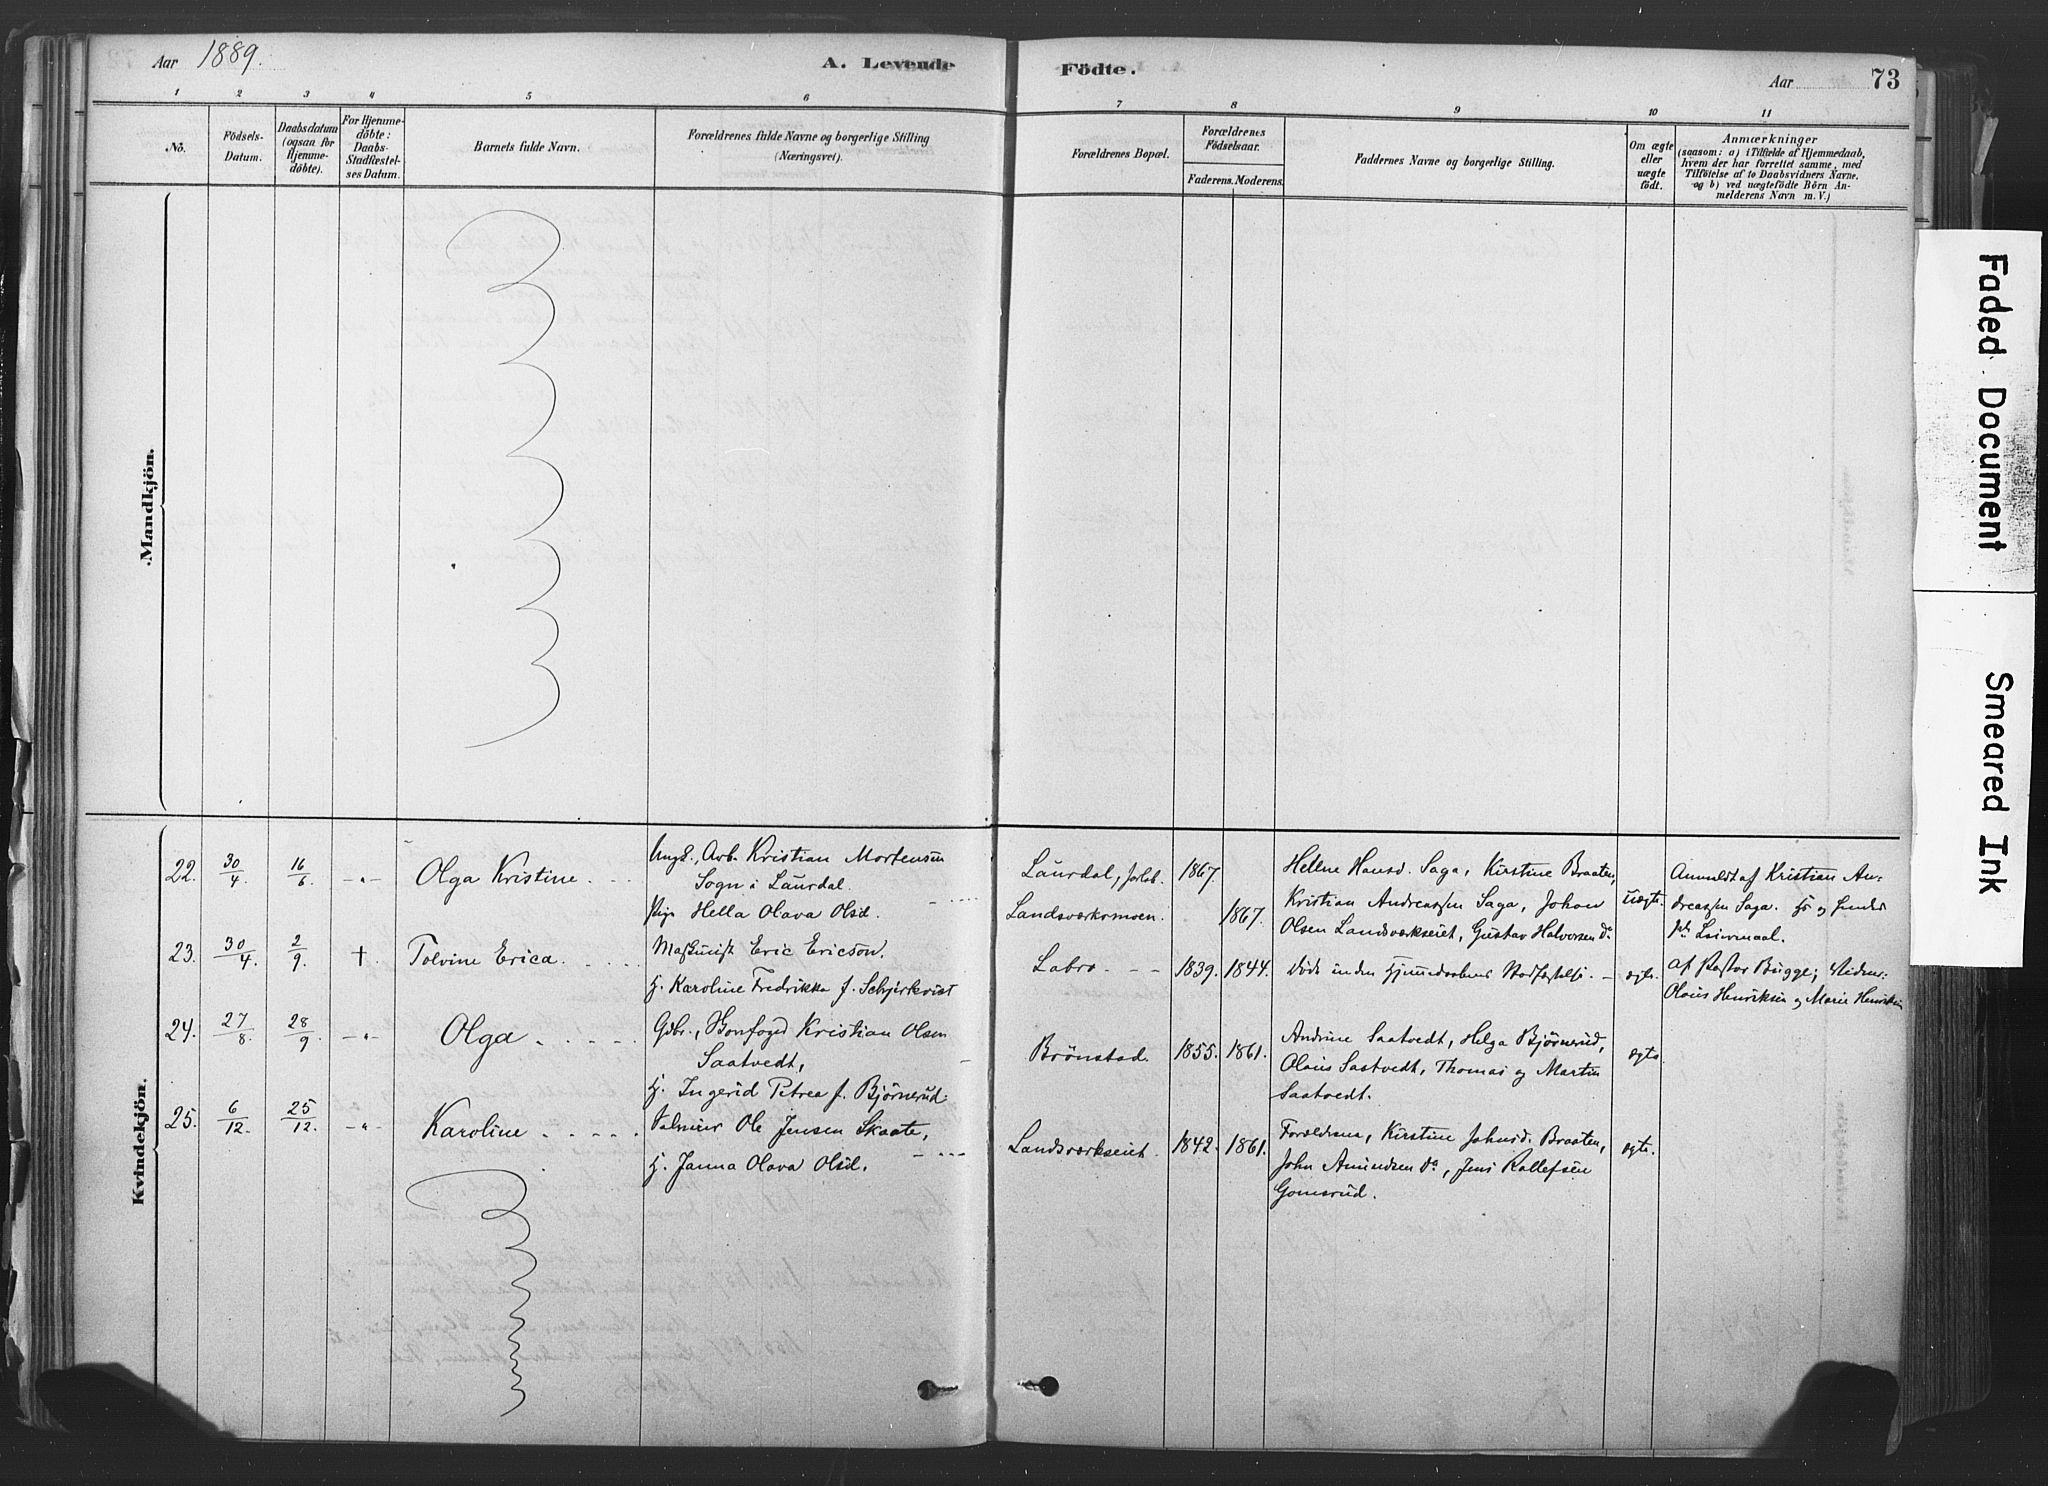 Aar 1889.
A. Levende Födte.
Aar 73
1 2 3 4 5 6 7 8 9 10 11
Nô.
Födsels-
Datum.
Daabsdatum
(ogsaa for
Hjemme-
döbte).
For Hjemme-
döbte:
Daabs-
Stadfæstel-
ses Datum.
Barnets fulde Navn.
Forældrenes fulde Navne og borgerlige Stilling
(Næringsvei).
Forældrenes Bopæl.
Forældrenes
Födselsaar.
Faderens. Moderens.
Faddernes Navne og borgerlige Stilling.
Om ægte
eller
uægte
födt.
Anmærkninger
(saasom: a) i Tilfælde af Hjemmedaab,
hvem der har forrettet samme, med
Tilföielse af to Daabsvidners Navne.
og b) ved uægtefödte Börn An-
melderens Navn m. V.)
Mandkjön.
Kvindekjön.
22. 30/4 16/6. -„- Olga Kristine
Ungk., Arb. Kristian Mortensen
Sogn i Laurdal.
Pige Hella Olava Olsd.
Laurdal, Jarlsb.
Landsværksmoen.
1867. 1867.
Hellene Hansd. Saga, Kirstine Braaten,
Kristian Andreassen Saga, Johan
Olsen Landsværkseiet, Gustav Halvorsen do
uægte.
Anmeldt af Kristian An-
dreassen Saga.
23. 30/4. 2/9. † Tolvine Erica.
Maskinist Eric Ericson.
H. Karoline Fredrikka f. Schjerkvist
Labro 1839. 1844.
Døde inden Hjemmedaabens Stadfæstelse. ægte.
af Pastor Bugge; Vidner:
Olaus Henriksen og Marie Henriksen
24. 27/8. 28/9 -„- Olga
Gdbr., Skovfoged Kristian Olsen
Saatvedt,
H. Ingerid Petrea f. Bjørnerud.
Brønstad. 1855. 1861.
Andrine Saatvedt, Helga Bjørnerud,
Olaus Saatvedt, Thomas og Martin
Saatvedt.
ægte.
25. 6/12. 25/12. -„- Karoline
Ole Jensen Skaate,
H. Janna Olava Olsd.
Landsværkseiet. 1842. 1861.
Forældrene, Kirstine Johnsd. Braaten,
John Amundsen do, Jens Rollefsen
Gomsrud.
ægte.
Faded Document
Smeared Ink